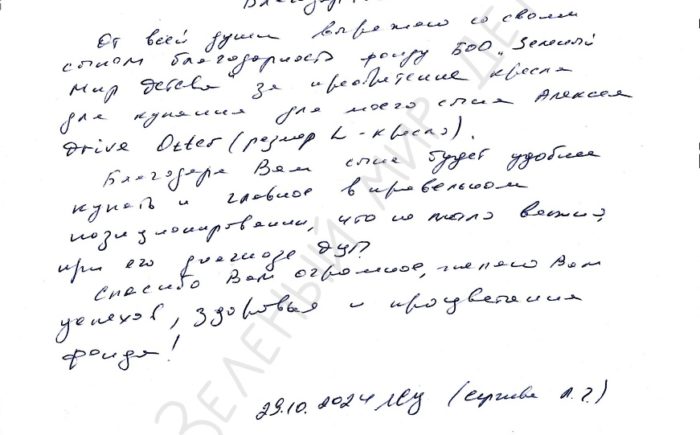 От всей души выражаю со своим
сыном благодарность фонду БОО „Зеленый
Мир Детства" за приобретение кресла
для купания для моего сына Алексея
Drive Otter (размер L - кресло).
Благодаря Вам сына будет удобнее
купать и главное в правельном
позиционировании, что не мало важно,
при его диагнозе ДЦП
Спасибо Вам огромное, желаю Вам
успехов, здоровья и процветания
фонда!
29.10.2024
ЗЕЛЕНЫЙ МИР ДЕ